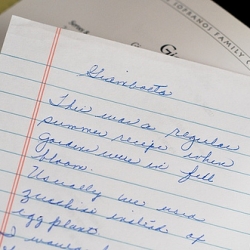 SOPRANOS FAMILY
Giambotta
This was a regular
summer recipe when
gardens were in full
bloom.
Usually we used
zucchini instead of
eggplant.